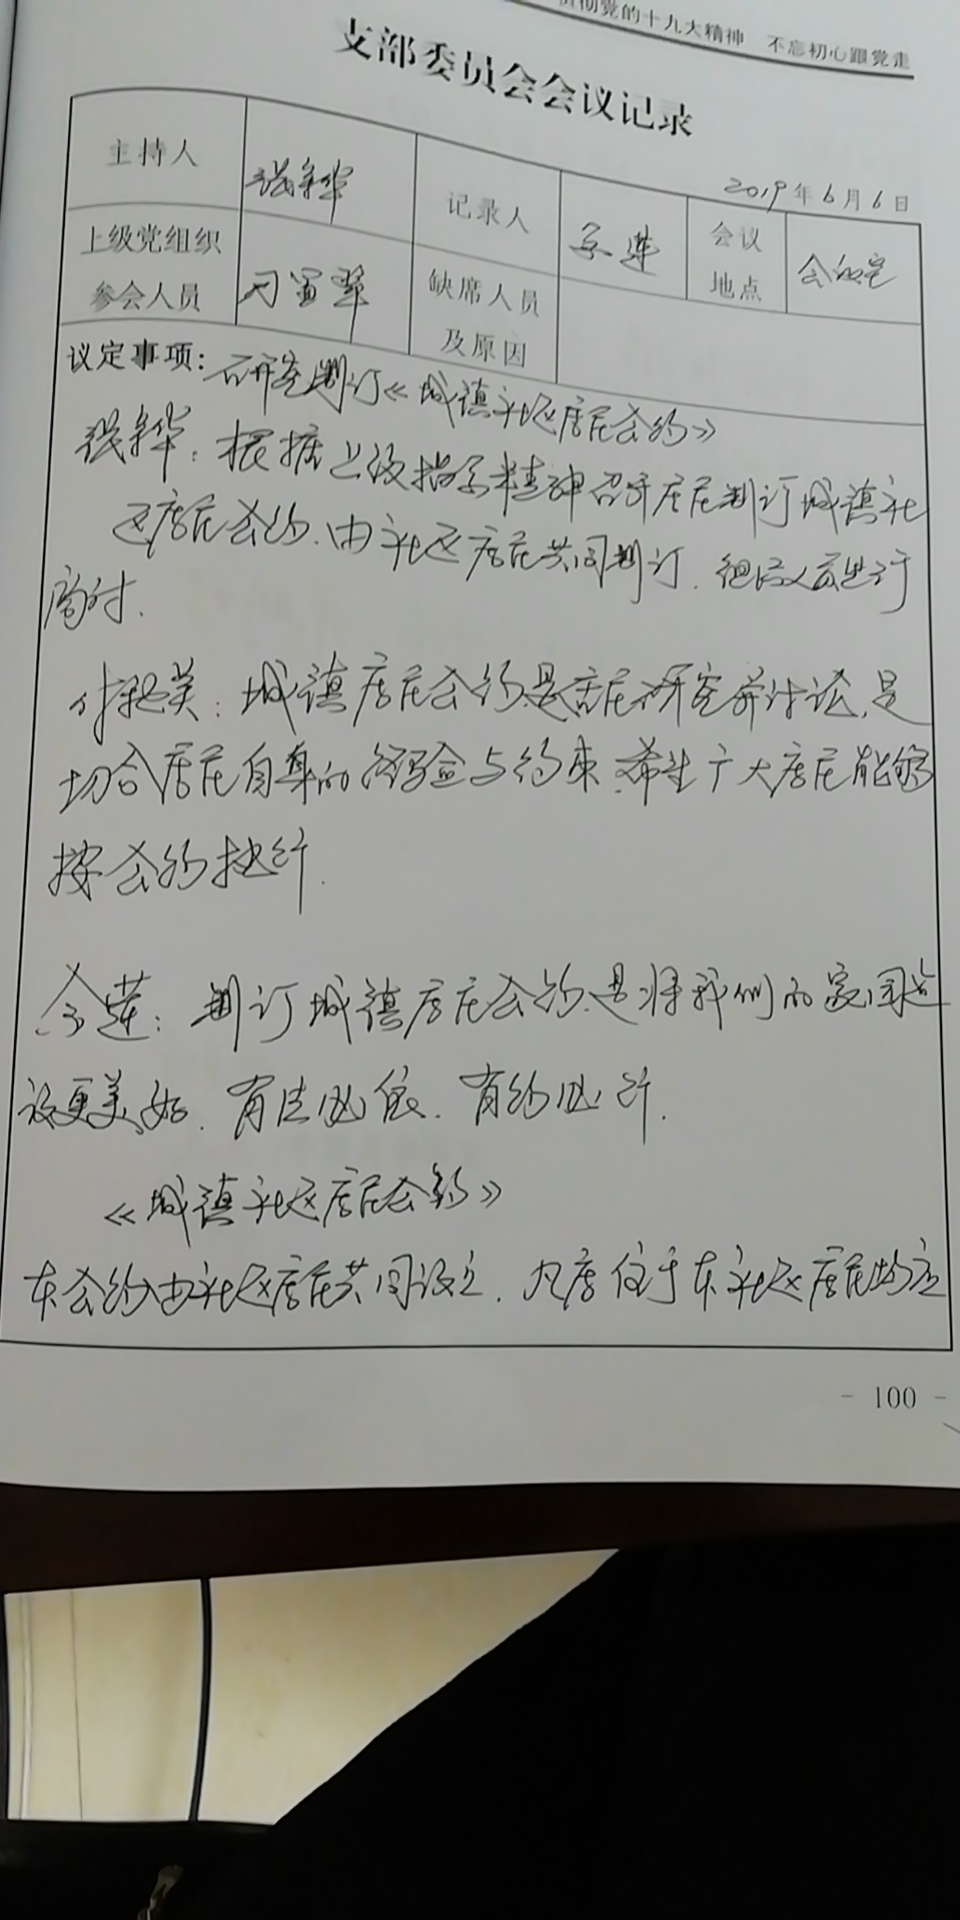 彻党的十九大精神 不忘初心跟党走
支部委员会会议记录
2019年6月6日
主持人 记录人 会议地点 会议室
上级党组织参会人员 缺席人员及原因
议定事项：研究制订《城镇社区居民公约》
根据上级指示精神召开居民制订城镇社
区居民公约.由社区居民共同制订.
商讨.
付艳美：城镇居民公约是居民研究并讨论,是
切合居民自身的经验与约束.希望广大居民能够
按公约执行.
余莲：制订城镇居民公约是将我们的家园建
设更美好.有法必依.有约必行.
《城镇社区居民公约》
本公约由社区居民共同设立.凡居住于本社区居民均应
- 100 -